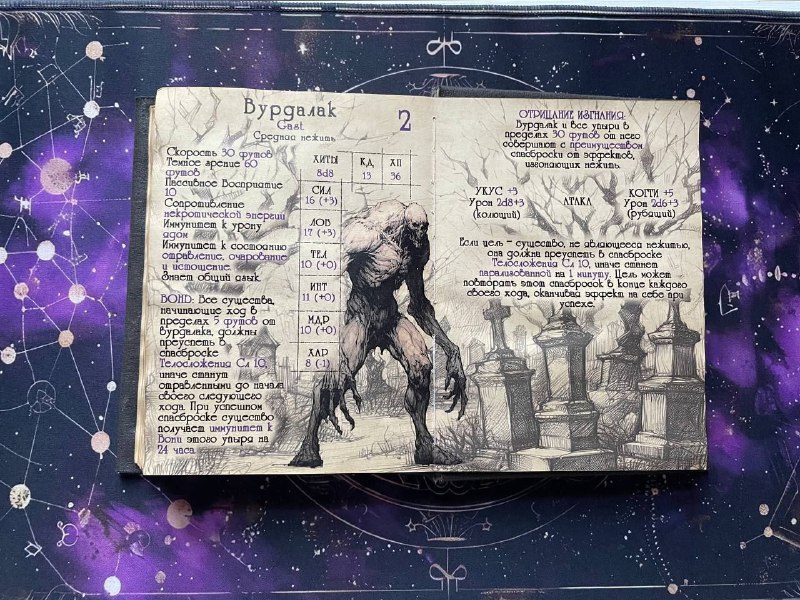 Вурдалак
Gast
Средняя нежить
2
Скорость 30 футов
Темное зрение 60
футов
Пассивное Восприятие
10
Сопротивление
некротической энергии
Иммунитет к урону
ядом
Иммунитет к состоянию
отравление, очарование
и истощение.
Знает общий язык.
ВОНЬ: Все существа,
начинающие ход в
пределах 5 футов от
вурдалака, должны
преуспеть в
спасброске
Телосложения Сл 10,
иначе станут
отравленными до начала
своего следующего
хода. При успешном
спасброске существо
получает иммунитет к
Вони этого упыря на
24 часа
ХИТЫ КД ХП
8d8 13 36
СИЛ
16 (+3)
ЛОВ
17 (+3)
ТЕЛ
10 (+0)
ИНТ
11 (+0)
МДР
10 (+0)
ХАР
8 (-1)
ОТРИЦАНИЕ ИЗГНАНИЯ:
Вурдалак и все упыри в
пределах 30 футов от него
совершают с преимуществом
спасброски от эффектов,
изгоняющих нежить.
УКУС +3
Урон 2d8+3
(колющий)
АТАКА
КОГТИ +5
Урон 2d6+3
(рубящий)
Если цель – существо, не являющееся нежитью,
она должна преуспеть в спасброске
Телосложения Сл 10, иначе станет
парализованной на 1 минуту. Цель может
повторять этот спасбросок в конце каждого
своего хода, оканчивая эффект на себе при
успехе.